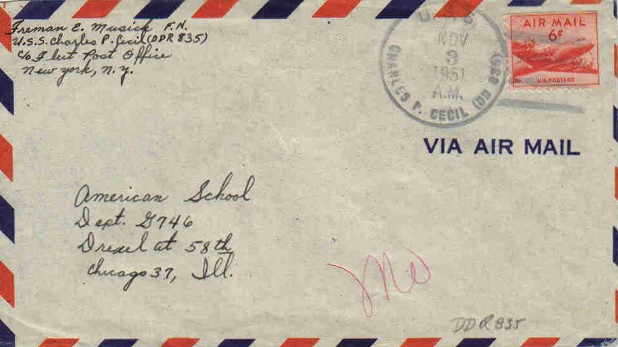 Freman E. Musick F.N.
U.S.S. Charles P. Cecil (DDR 835)
c/o Fleet Post Office
New york, N.y.
NOV
3
1951
A.M.
CHARLES P. CECIL (DD 835)
AIR MAIL
6¢
U.S. POSTAGE
VIA AIR MAIL
American School
Dept. G746
Drexel at 58th
Chicago 37, Ill.
DDR 835